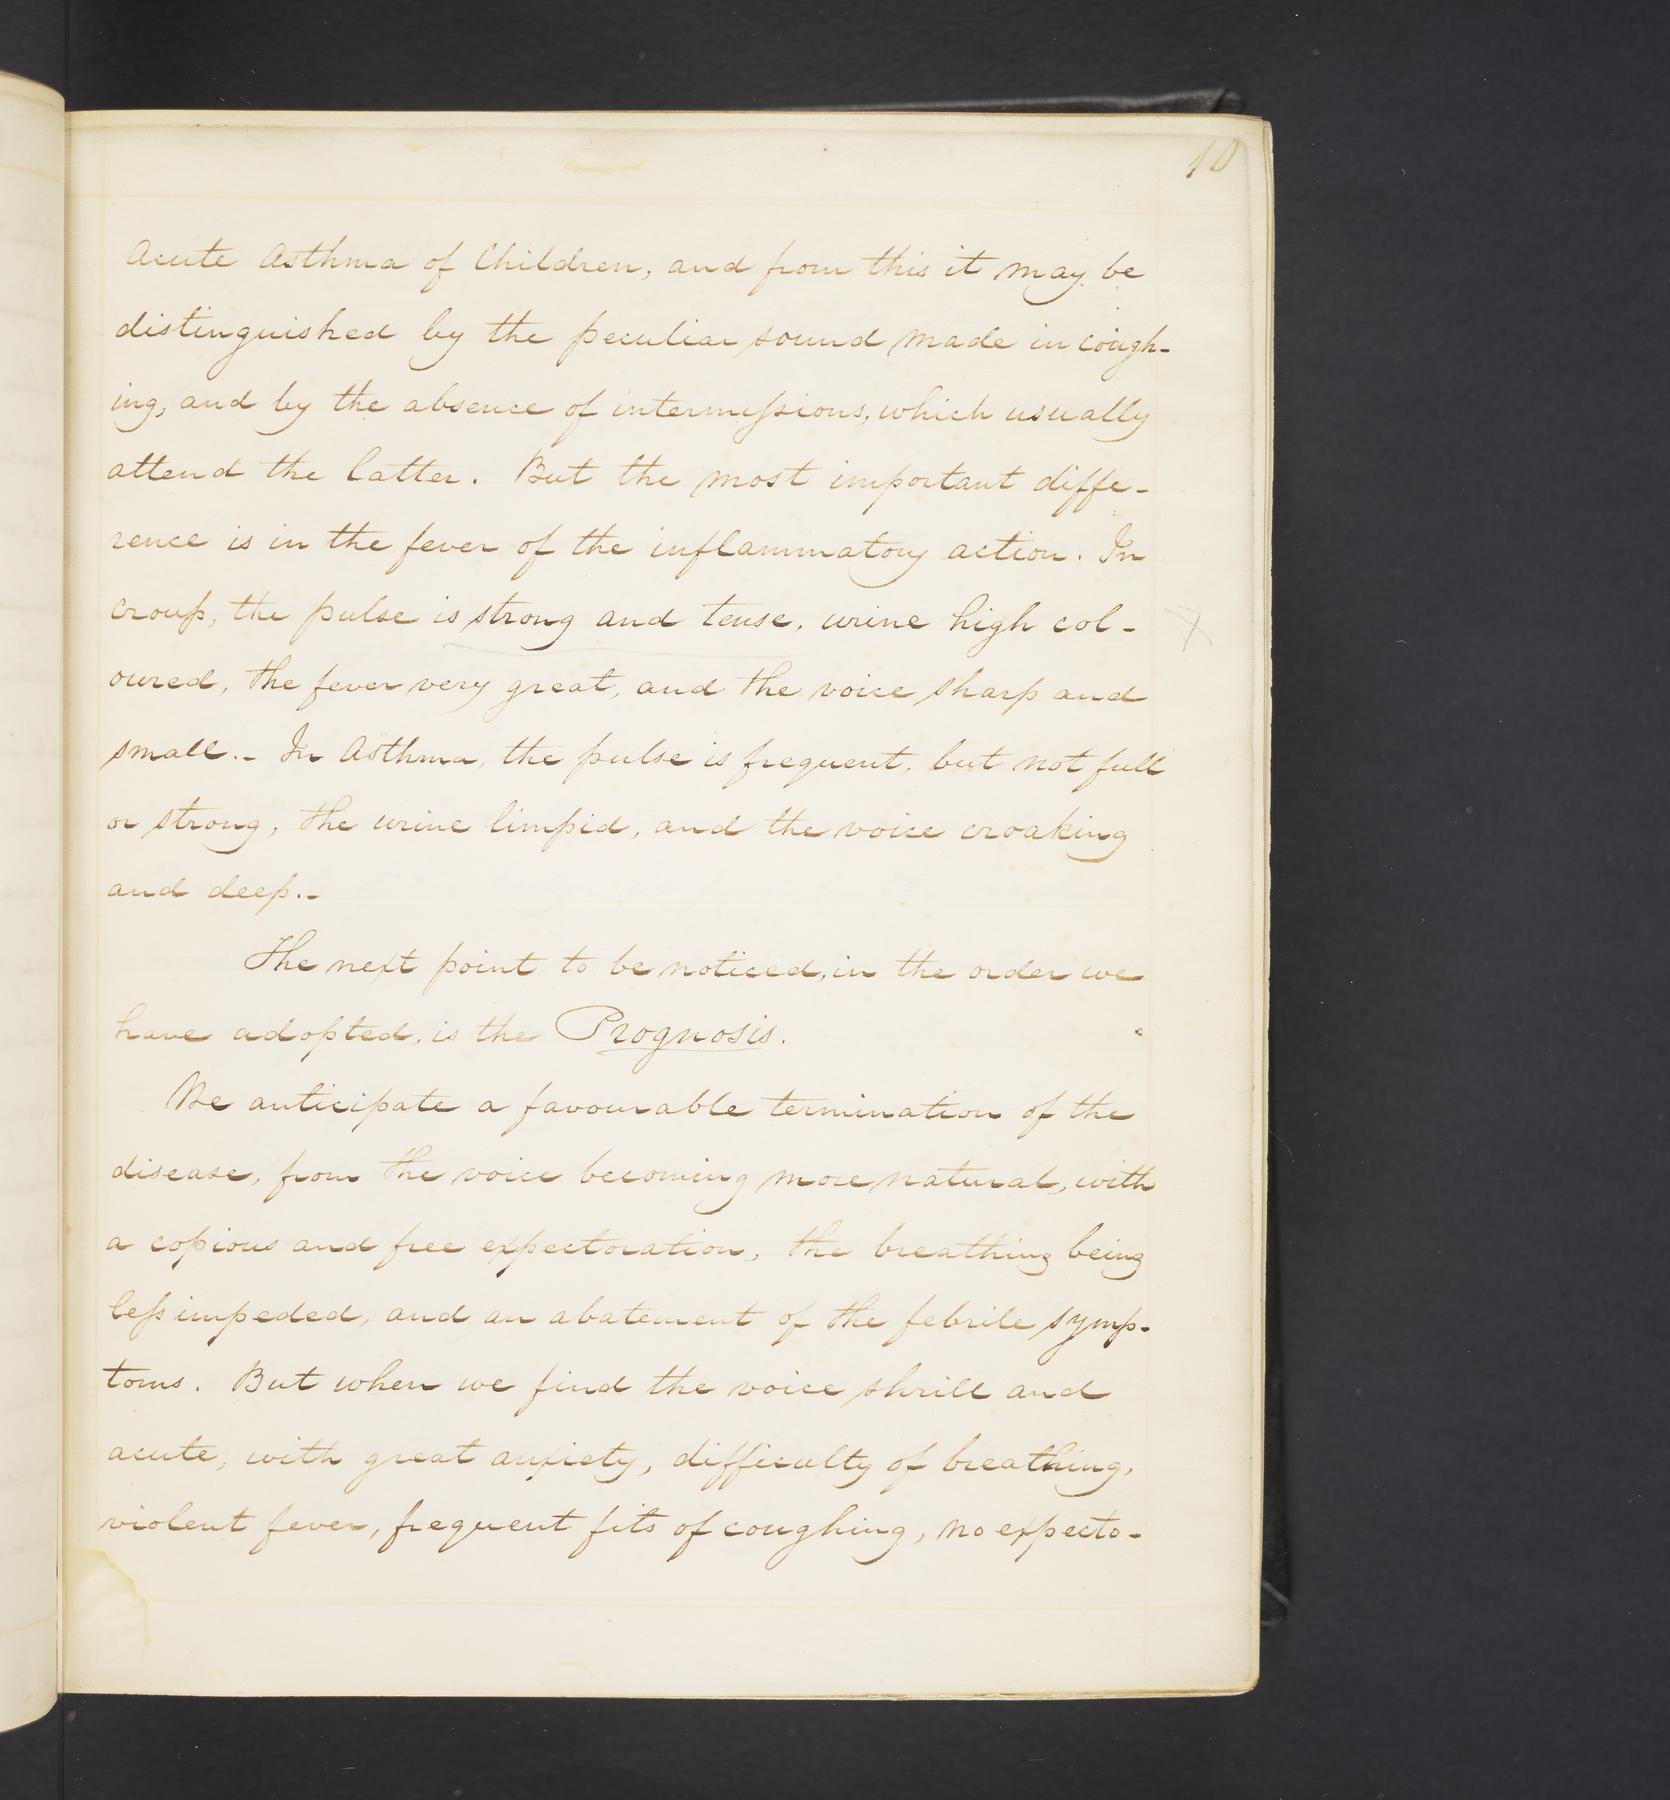 10
Acute Asthma of Children, and from this it may be
distinguished by the peculiar sound made in cough-
ing, and by the absence of intermiſsions, which usually
attend the latter. But the most important diffe-
rence is in the fever of the inflammatory action. In
croup, the pulse is strong and tense, urine high col-
oured, the fever very great, and the voice sharp and
small.- In Asthma, the pulse is frequent, but not full
or strong, the urine limpid, and the voice croaking
and deep.-
The next point to be noticed, in the order we
have adopted, is the Prognosis.
We anticipate a favourable termination of the
disease, from the voice becoming more natural, with
a copious and free expectoration, the breathing being
leſs impeded, and an abatement of the febrile symp-
toms. But when we find the voice shrill and
acute, with great anxiety, difficulty of breathing,
violent fever, frequent fits of coughing, no expecto-